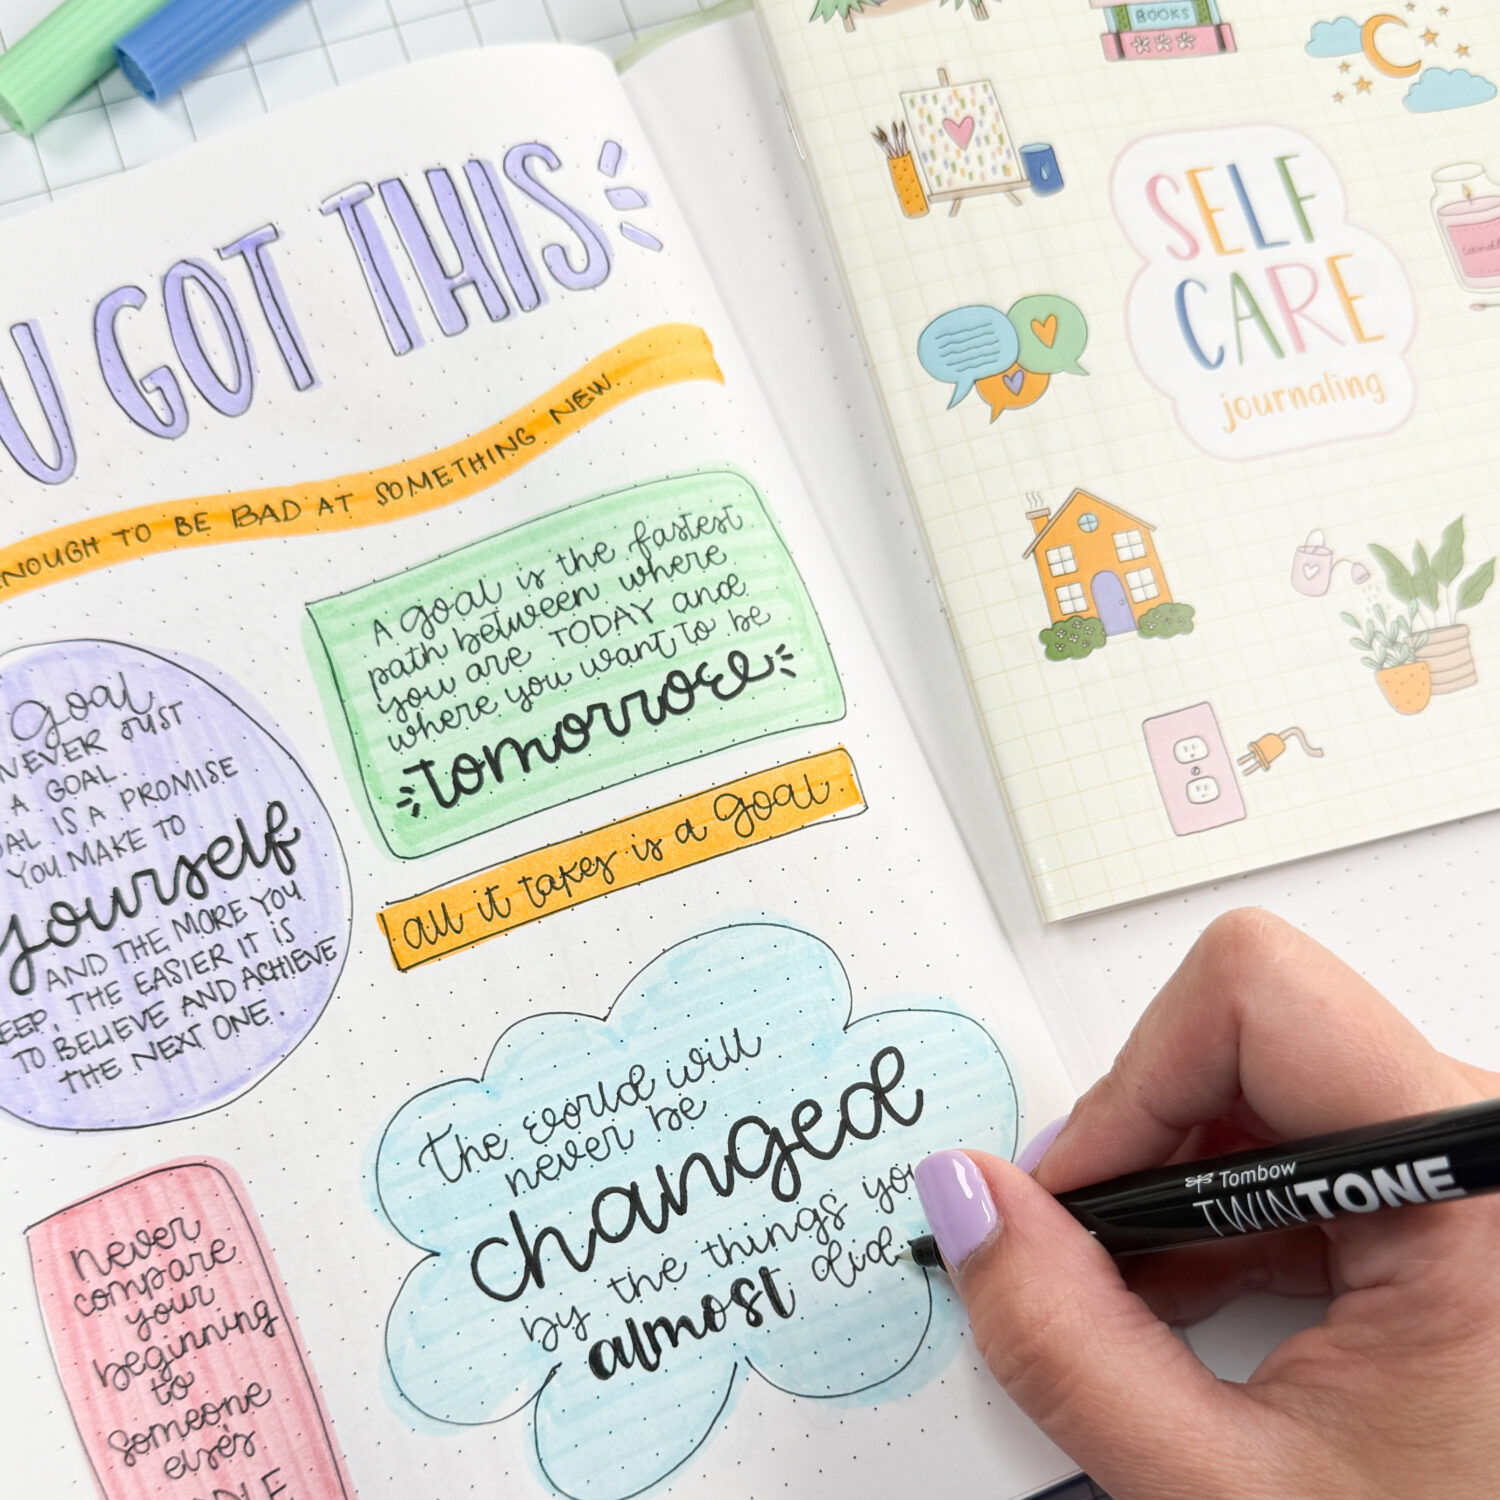 U GOT THIS
ENOUGH TO BE BAD AT SOMETHING NEW.
goal
NEVER JUST
A GOAL.
IS A PROMISE
YOU MAKE TO
yourself
AND THE MORE YOU
THE EASIER IT IS
TO BELIEVE AND ACHIEVE
THE NEXT ONE.
A goal is the fastest
path between where
you are TODAY and
where you want to be
tomorrow
all it takes is a goal.
never
compare
your
beginning
to
someone
else's
The world will
never be
changed
by the things you
almost did
BOOKS
SELF
CARE
journaling
candle
Tombow
TWINTONE